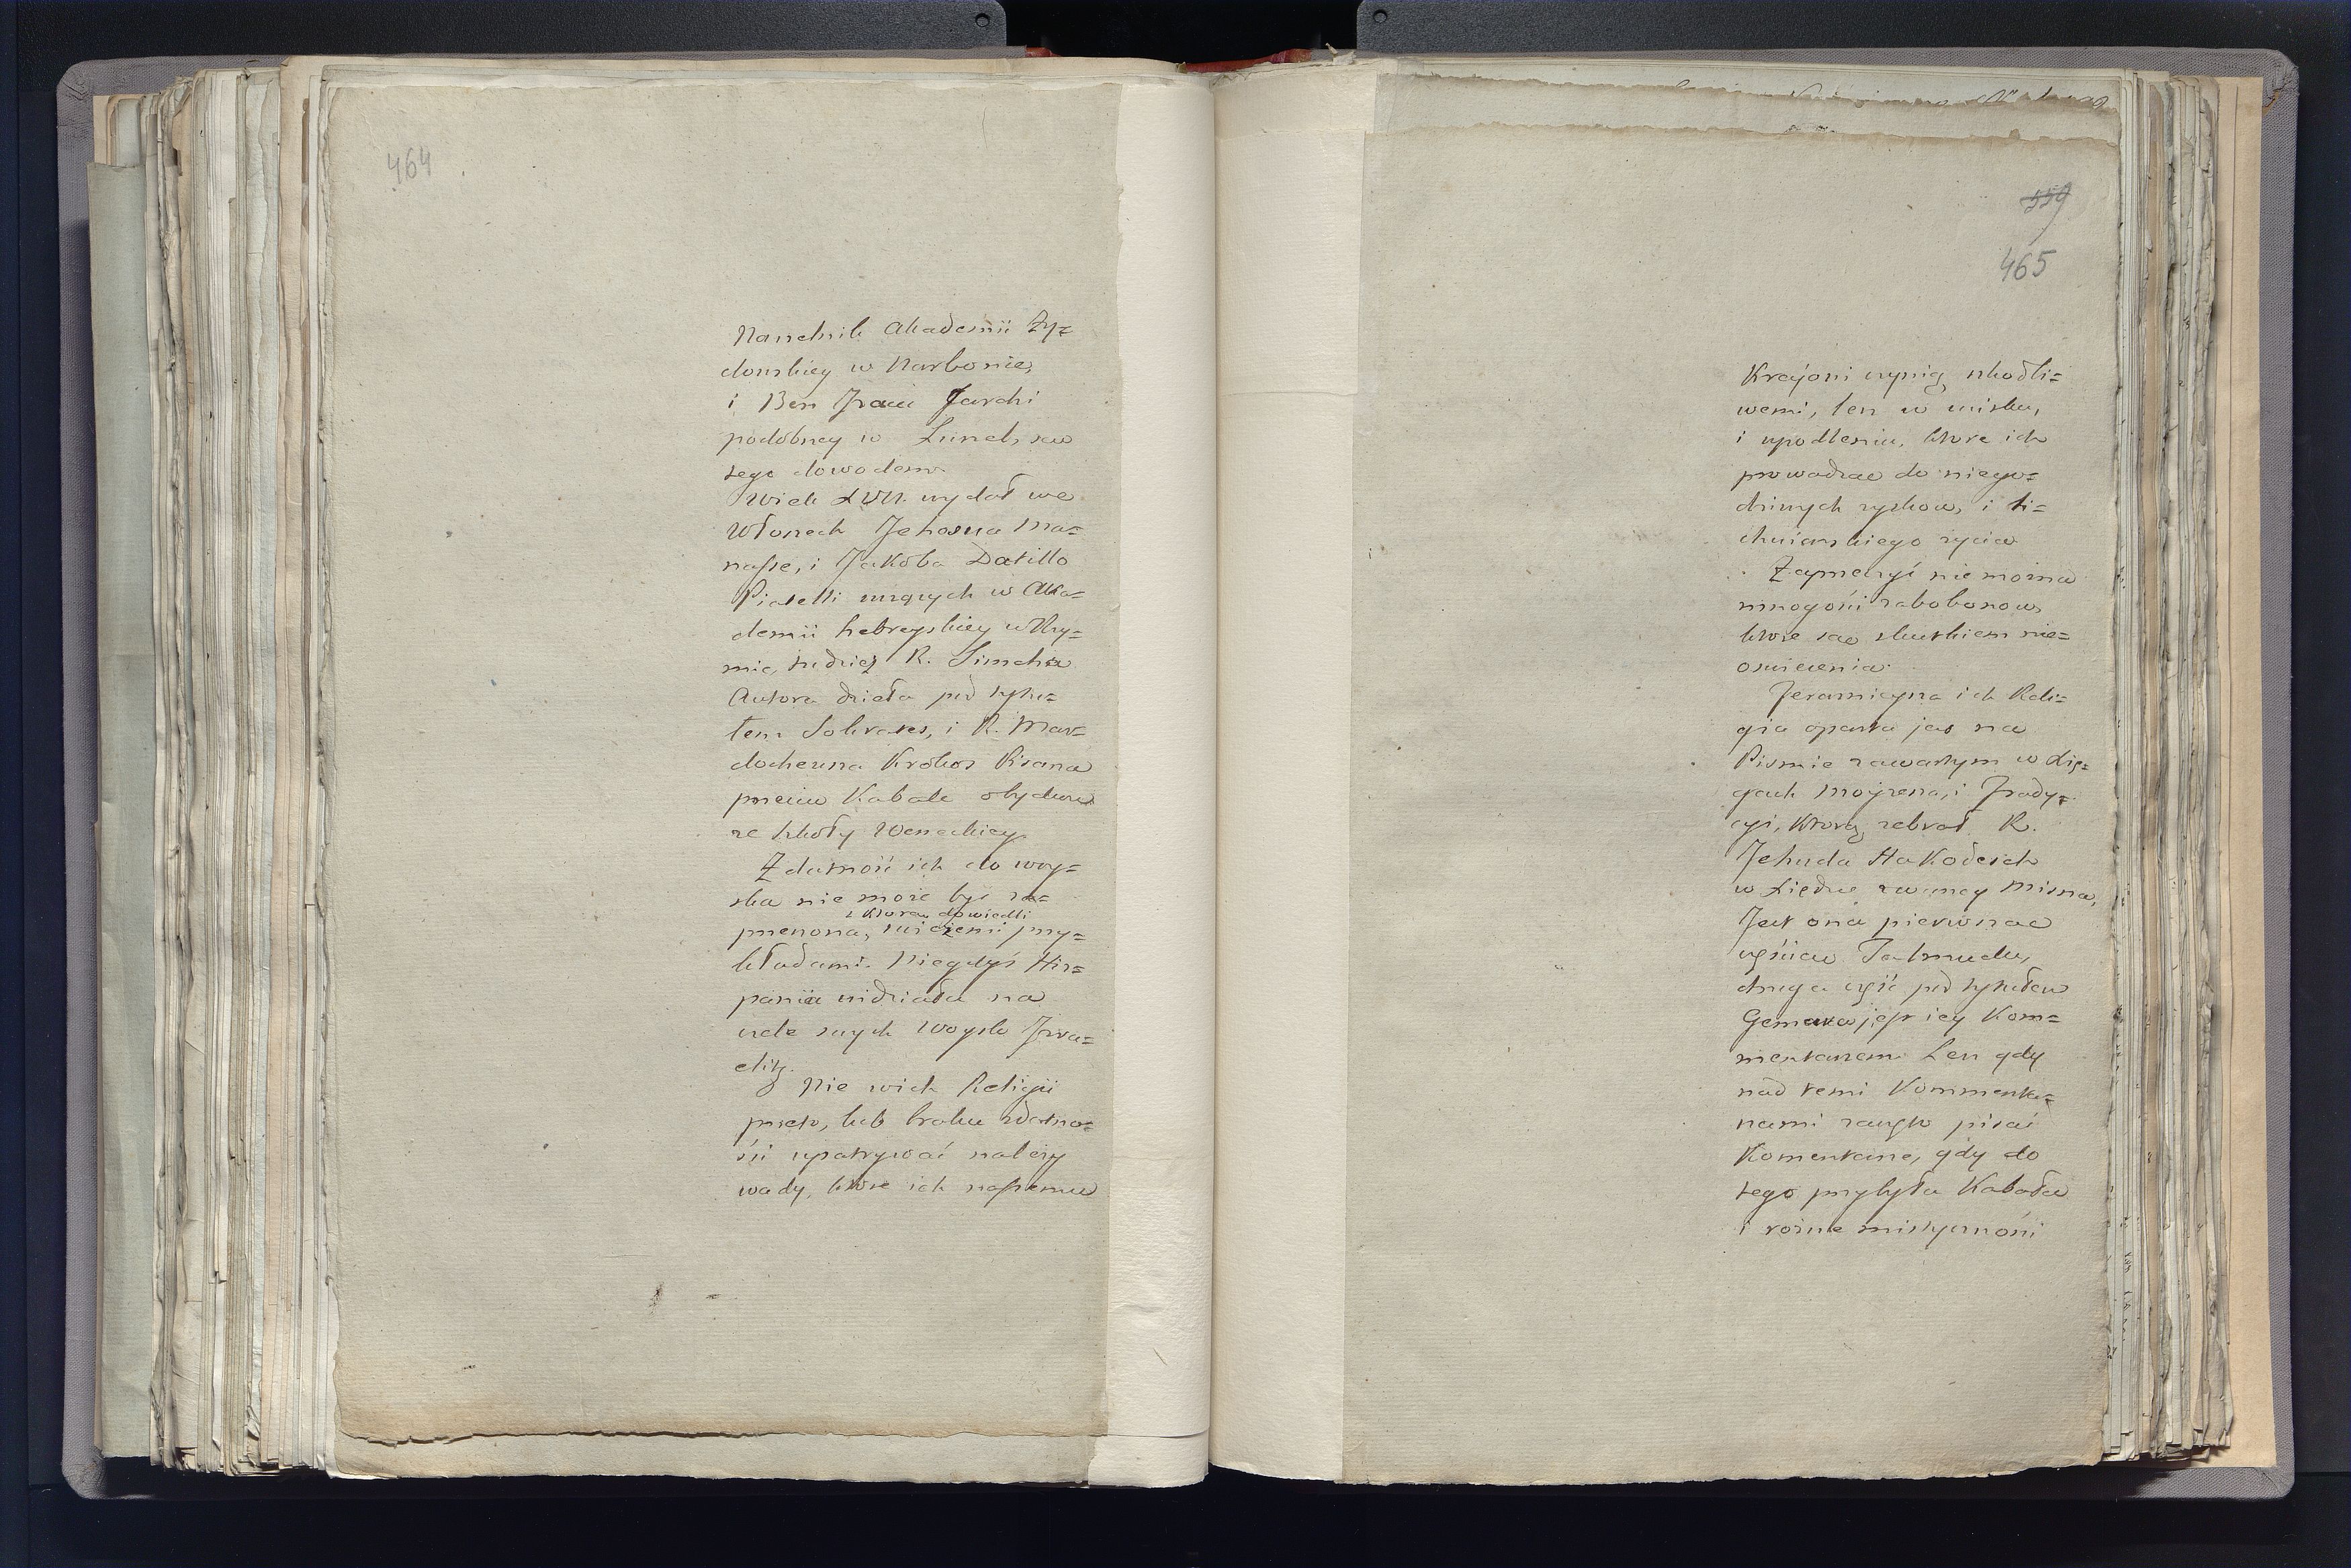 464
Naucelnik Akademii Ży=
dowskiey w Narbonie,
i Ben Izaü Jarchi
podobney w Lunel, sa
tego dowodem
Wiek XVII. wydał we
Włoszech Jehosua Ma=
nasse, i Jakoba Datillo
Piatelli uczących w Aka=
demii hebreyskiey w Rzy=
mie, tudzież R. Simcha
Autora dzieła pod tytu=
łem Solvares, i R. Mar=
docheusza Krokos Pisana
przeciw Kabale obydwu
ze szkoły Weneckiey
Zdatność ich do woy=
ska nie może być za=
z ktorą dowiedli
przeczona, świeżemi przy=
kładami. Niegdyś His=
pania widziała na
czele swych Woysk Izra=
elitę.
Nie wich Religii
przeto, lub braku zdatno=
ści upatrywać należy
wady, ktore ich naszemu
559
465
Kraiowi czynią szkodli=
wemi, lecz w ucisku,
i upodleniu, ktore ich
prowadzą do niego=
dziwych zyskow, i li=
chwiarskiego życia
Zaprzeczyć nie można
mnogości zabobonow,
ktore są skutkiem nie=
oswiecenia.
Teraźnieysza ich Reli=
gia oparta jes na
Pismie zawartym w Xię=
gach Moyżesza, i Trady=
cyi, Ktorą zebrał R.
Jehuda HaKodesch
w Xiędze zwaney Misna,
Jest ona pierwszą
częścią Talmudu,
druga część pod tytułem
Gemara jest iey Kom=
mentarzem Lecz gdy
nad temi Kommenta=
rzami zaczęto pisać
Komentarze, gdy do
tego przybyła Kabała
i rożne mistyczności